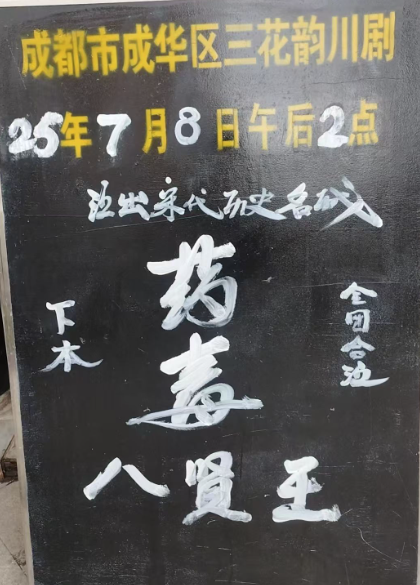 成都市成华区三花韵川剧
25年7月8日午后2点
演出宋代历史名戏
药毒
八贤王
下本
全团合演